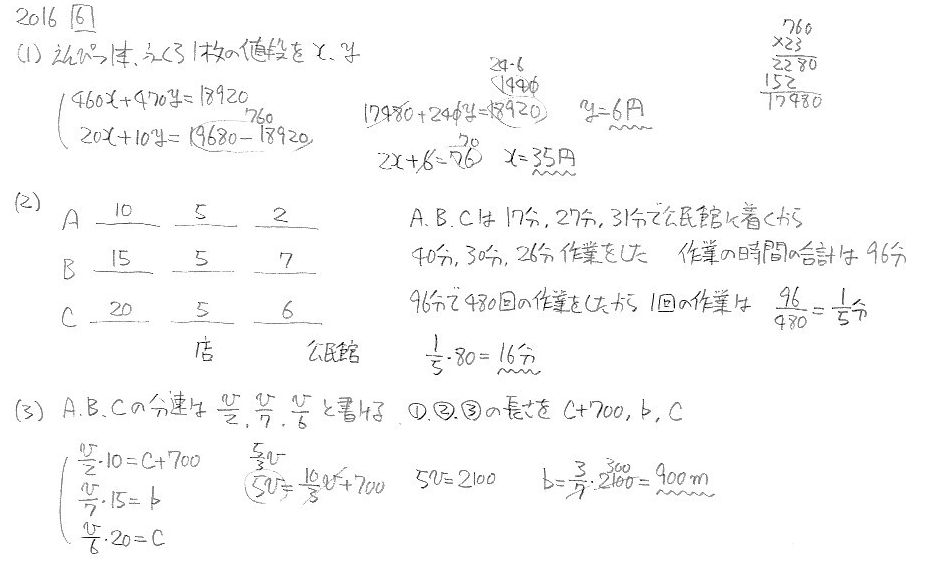 2016 6
(1) えんぴつ1本、ふくろ1枚の値段を x、y
460x+470y=18920
20x+10y=19680-18920
760
17480+240y=18920
24・6
1440
y=6円
2x+6=76
70
x=35円
760
×23
2280
152
17480
(2)
A 10 5 2
B 15 5 7
C 20 5 6
店 公民館
A.B.Cは17分,27分,31分で公民館に着くから
40分,30分,26分作業をした 作業の時間の合計は96分
96分で480回の作業をしたから 1回の作業は 96/480=1/5分
1/5・80=16分
(3) A.B.Cの分速は v/2, v/7, v/6 と書ける ①.②.③の長さを c+700, b, c
v/2・10=c+700
v/7・15=b
v/6・20=c
5/3v
5v=10/3v+700
5v=2100
b=3/7・2100=900m
300